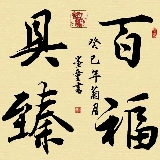 百福
具臻
癸巳年菊月